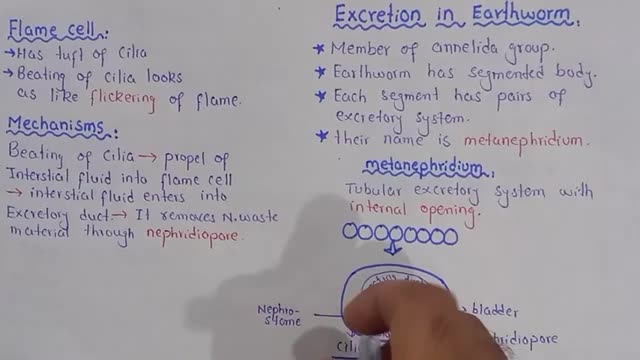 Flame cell:
→Has tuft of Cilia
→Beating of cilia looks
as like flickering of flame.
Mechanisms:
Beating of Cilia → propel of
Interstial fluid into flame cell
→ interstial fluid enters into
Excretory duct → It removes N.waste
material through nephridiopore.
Excretion in Earthworm:
★ Member of annelida group.
★ Earthworm has segmented body.
★ Each segment has pairs of
excretory system.
★ their name is metanephridium.
metanephridium:
Tubular excretory system with
internal opening.
Nephro-
stome
bladder